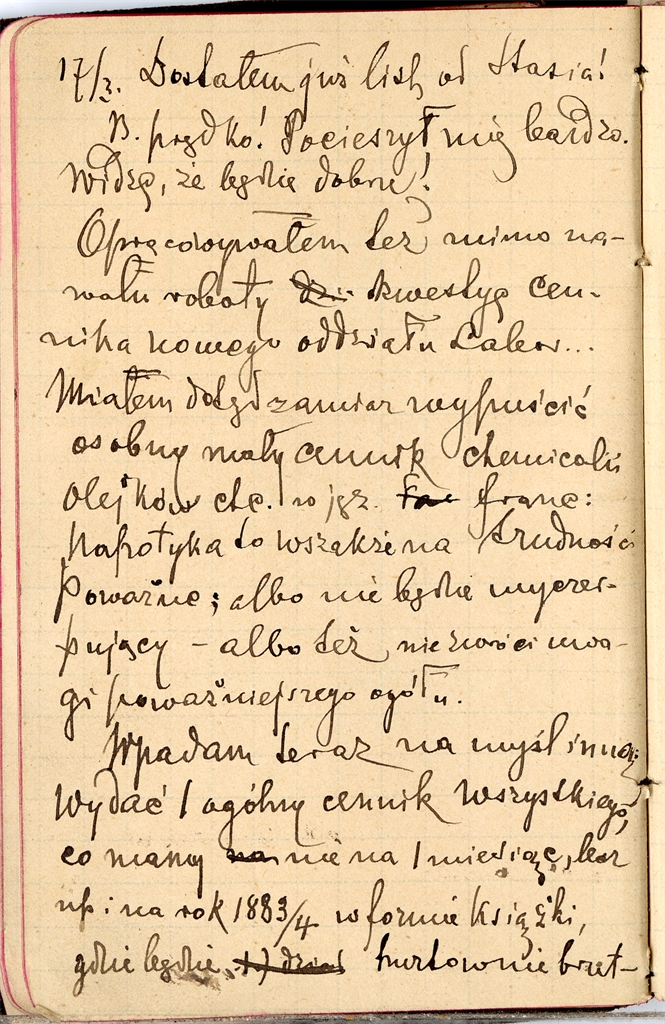 17/3. Dostałem już list od Stasia!
B. prędko! Pocieszył mię bardzo.
Widzę, że będzie dobrze!
Opracowywałem też mimo na-
wału roboty kwestyę cen-
nika nowego oddziału Labor...
Miałem dotąd zamiar wypuścić
osobny mały cennik chemicalii
olejków etc. w jęz. franc:
Napotyka to wszakże na trudności
Poważne; albo nie będzie wyczer-
pujący – albo też nie zwróci uwa-
gi poważniejszego ogółu.
Wpadam teraz na myśl inną;
Wydać 1 ogólny cennik wszystkiego,
co mamy nie na 1 miesiąc, lecz
np: na rok 1883/4 w formie książki,
gdzie będzie hurtownie brut-